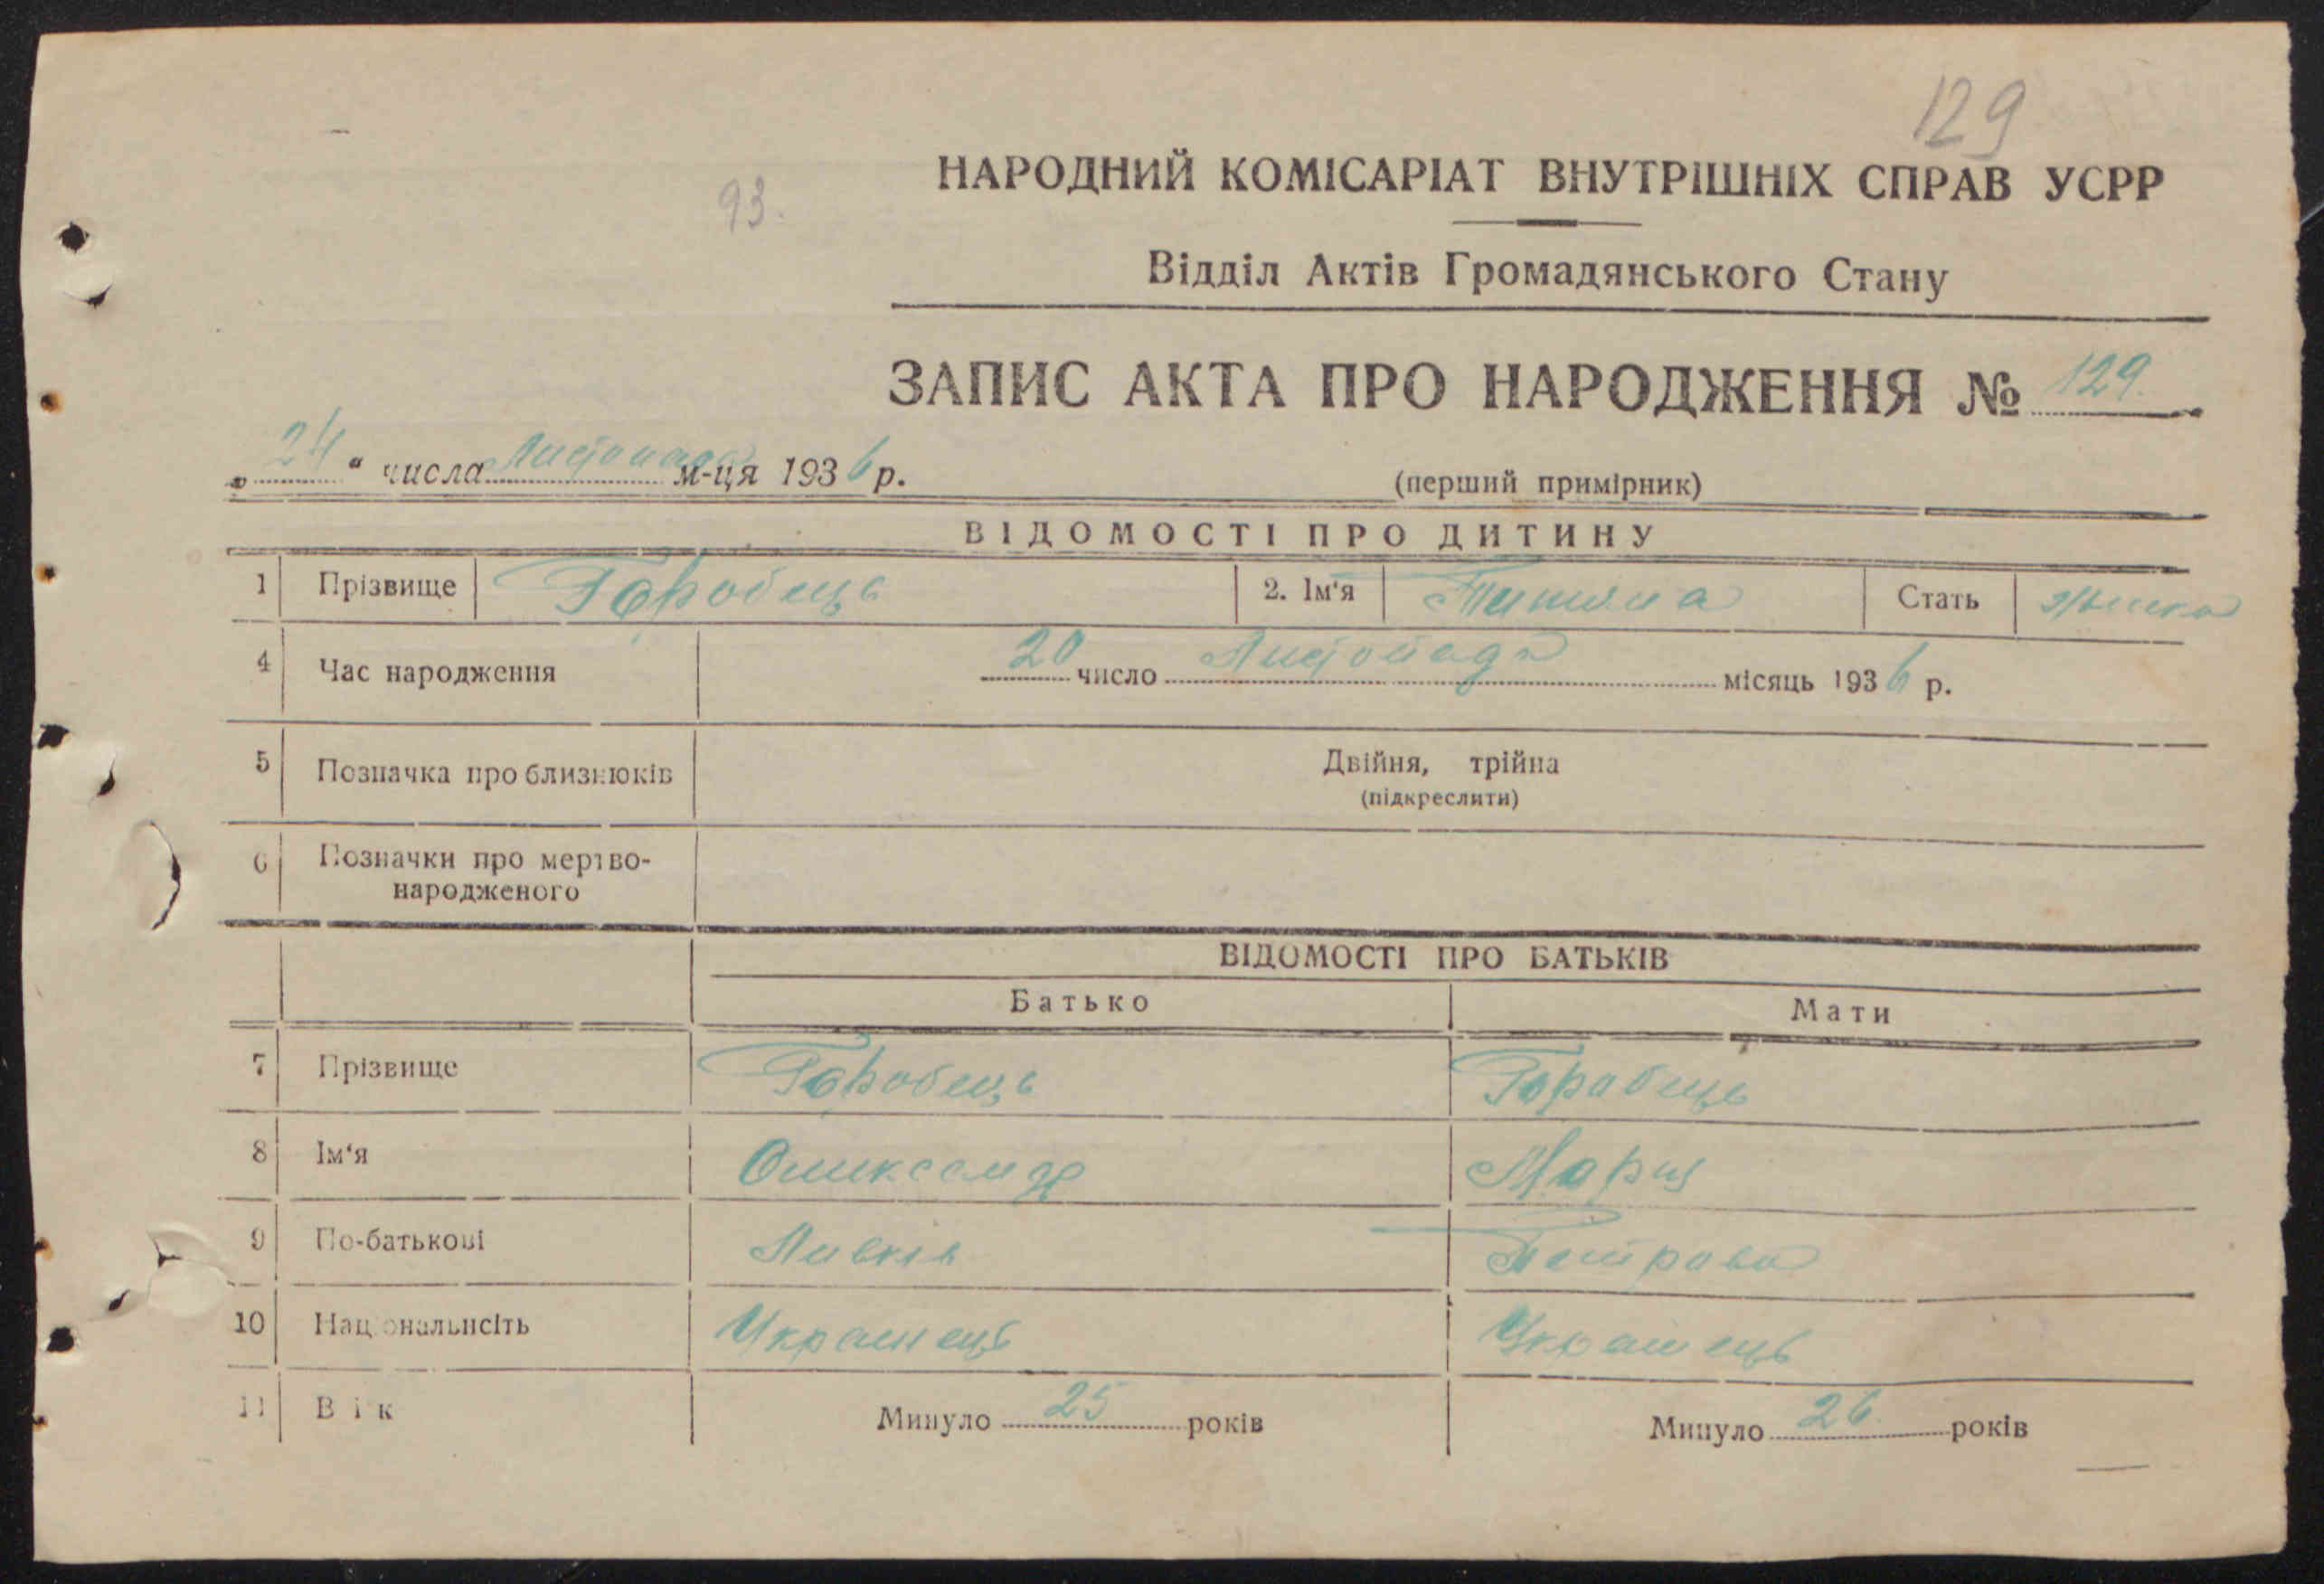 129
НАРОДНИЙ КОМІСАРІАТ ВНУТРІШНІХ СПРАВ УСРР
93.
Відділ Актів Громадянського Стану
ЗАПИС АКТА ПРО НАРОДЖЕННЯ № 129.
„24“ числа Листопада м-ця 1936 р.
(перший примірник)
ВІДОМОСТІ ПРО ДИТИНУ
1 Прізвище Горобець 2. Ім'я Титяна Стать
4 Час народження 20 число Листопада місяць 1936 р.
5 Позначка про близнюків Двійня, трійна
(підкреслити)
6 Позначки про мертво-
народженого
ВІДОМОСТІ ПРО БАТЬКІВ
Батько Мати
7 Прізвище Горобець Горобець
8 Ім'я Олександр Мария
9 По-батькові Петрова
10 Національнсіть Украинець Украинець
11 Вік Минуло 25 років Минуло 26 років